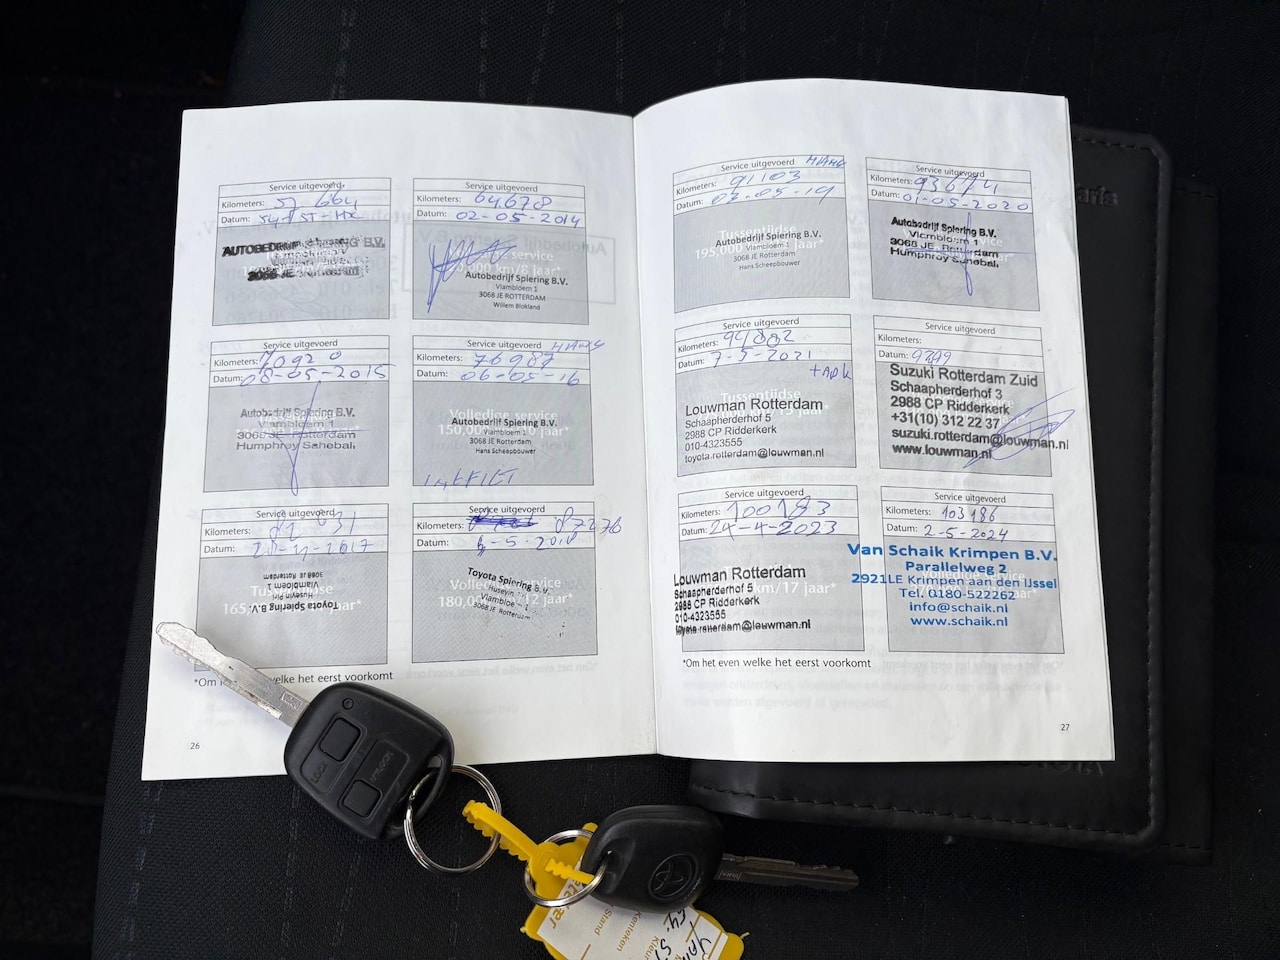 Service uitgevoerd
Kilometers: 57 664
Datum: 54-ST-HX
AUTOBEDRIJF SPIERING B.V.
3068 JE Rotterdam
Service uitgevoerd
Kilometers: 64678
Datum: 02-05-2014
Autobedrijf Spiering B.V.
Vlambloem 1
3068 JE ROTTERDAM
Willem Blokland
Service uitgevoerd
Kilometers: 70920
Datum: 08-05-2015
Autobedrijf Spiering B.V.
Vlambloem 1
3068 JE Rotterdam
Humphrey Sahebali
Service uitgevoerd
Kilometers: 76987
Datum: 06-05-16
Volledige service
Autobedrijf Spiering B.V.
Vlambloem 1
3068 JE Rotterdam
Hans Scheepbouwer
Service uitgevoerd
Kilometers: 82 931
Datum:
Toyota Spiering B.V.
Vlambloem 1
3068 JE Rotterdam
Service uitgevoerd
Kilometers: 87276
Datum:
Toyota Spiering B.V.
Huseyin
Vlambloem 1
3068 JE Rotterdam
*Om het even welke het eerst voorkomt
26
Service uitgevoerd
Kilometers: 91103
Datum: 02-05-19
Tussentijdse
Autobedrijf Spiering B.V.
Vlambloem 1
3068 JE Rotterdam
Hans Scheepbouwer
Service uitgevoerd
Kilometers: 93674
Datum: 01-05-2020
Autobedrijf Spiering B.V.
Vlambloem 1
3068 JE Rotterdam
Humphrey Sahebali
Service uitgevoerd
Kilometers: 94882
Datum: 7-5-2021
+APK
Louwman Rotterdam
Schaapherderhof 5
2988 CP Ridderkerk
010-4323555
toyota.rotterdam@louwman.nl
Service uitgevoerd
Kilometers:
Datum: 9299
Suzuki Rotterdam Zuid
Schaapherderhof 3
2988 CP Ridderkerk
+31(10) 312 22 37
suzuki.rotterdam@louwman.nl
www.louwman.nl
Service uitgevoerd
Kilometers: 100183
Datum: 24-4-2023
Louwman Rotterdam
Schaapherderhof 5
2988 CP Ridderkerk
010-4323555
toyota.rotterdam@louwman.nl
Service uitgevoerd
Kilometers: 103186
Datum: 2-5-2024
Van Schaik Krimpen B.V.
Parallelweg 2
2921LE Krimpen aan den IJssel
Tel. 0180-522262
info@schaik.nl
www.schaik.nl
*Om het even welke het eerst voorkomt
27
LOCK
Kenteken
Stand